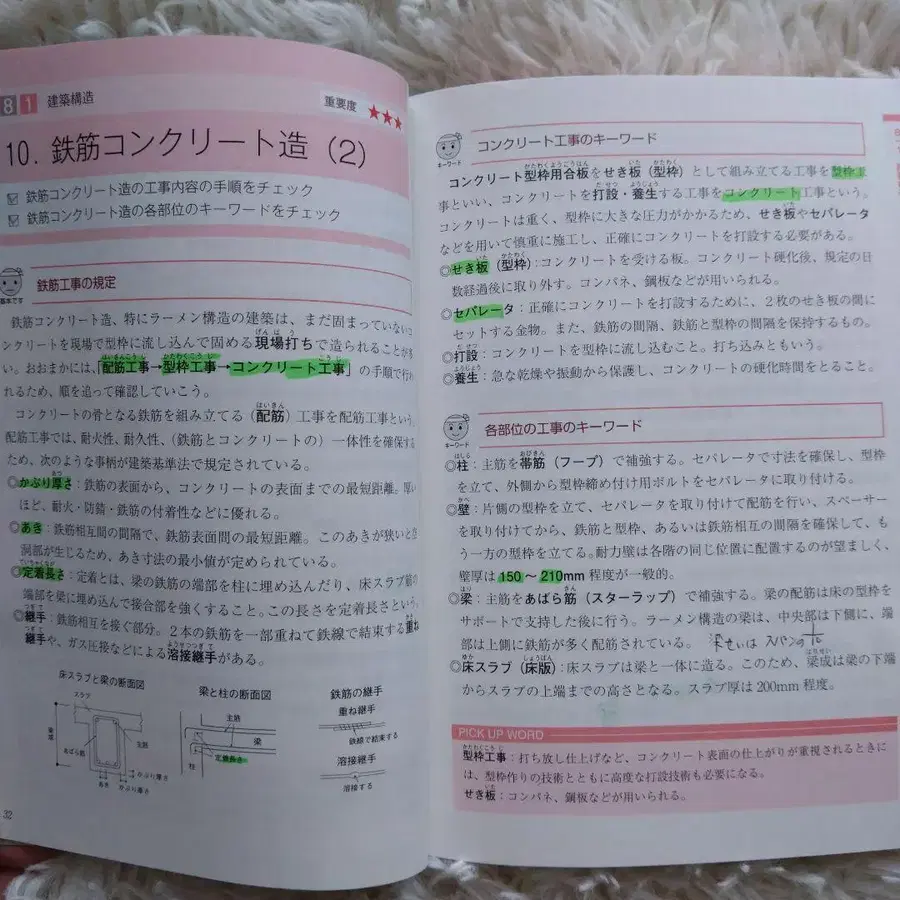 8 1 建築構造
重要度 ★★★
10. 鉄筋コンクリート造（2）
鉄筋コンクリート造の工事内容の手順をチェック
鉄筋コンクリート造の各部位のキーワードをチェック
基本です
鉄筋工事の規定
鉄筋コンクリート造、特にラーメン構造の建築は、まだ固まっていない
ンクリートを現場で型枠に流し込んで固める現場打ちで造られることが
い。おおまかには、「配筋工事→型枠工事→コンクリート工事」の手順で行
れるため、順を追って確認していこう。
コンクリートの骨となる鉄筋を組み立てる（配筋）工事を配筋工事という
配筋工事では、耐火性、耐久性、（鉄筋とコンクリートの）一体性を確保す
ため、次のような事柄が建築基準法で規定されている。
◎かぶり厚さ：鉄筋の表面から、コンクリートの表面までの最短距離。厚い
ほど、耐火・防錆・鉄筋の付着性などに優れる。
◎あき：鉄筋相互間の間隔で、鉄筋表面間の最短距離。このあきが狭いと
洞部が生じるため、あき寸法の最小値が定められている。
◎定着長さ：定着とは、梁の鉄筋の端部を柱に埋め込んだり、床スラブ筋の
端部を梁に埋め込んで接合部を強くすること。この長さを定着長さという。
◎継手：鉄筋相互を接ぐ部分。2本の鉄筋を一部重ねて鉄線で結束する重ね
継手や、ガス圧接などによる溶接継手がある。
床スラブと梁の断面図
スラブ
梁成
あばら筋
主筋
かぶり厚さ
あき
かぶり厚さ
梁と柱の断面図
主筋
梁
定着長さ
柱
鉄筋の継手
重ね継手
鉄線で結束する
溶接継手
溶接する
32
キーワード
コンクリート工事のキーワード
コンクリート型枠用合板をせき板（型枠）として組み立てる工事を型枠工
事といい、コンクリートを打設・養生する工事をコンクリート工事という。
コンクリートは重く、型枠に大きな圧力がかかるため、せき板やセパレータ
などを用いて慎重に施工し、正確にコンクリートを打設する必要がある。
◎せき板（型枠）：コンクリートを受ける板。コンクリート硬化後、規定の日
数経過後に取り外す。コンパネ、鋼板などが用いられる。
◎セパレータ：正確にコンクリートを打設するために、2枚のせき板の間に
セットする金物。また、鉄筋の間隔、鉄筋と型枠の間隔を保持するもの。
◎打設：コンクリートを型枠に流し込むこと。打ち込みともいう。
◎養生：急な乾燥や振動から保護し、コンクリートの硬化時間をとること。
キーワード
各部位の工事のキーワード
◎柱：主筋を帯筋（フープ）で補強する。セパレータで寸法を確保し、型枠
を立て、外側から型枠締め付け用ボルトをセパレータに取り付ける。
◎壁：片側の型枠を立て、セパレータを取り付けて配筋を行い、スペーサー
を取り付けてから、鉄筋と型枠、あるいは鉄筋相互の間隔を確保して、も
う一方の型枠を立てる。耐力壁は各階の同じ位置に配置するのが望ましく、
壁厚は150～210mm程度が一般的。
◎梁：主筋をあばら筋（スターラップ）で補強する。梁の配筋は床の型枠を
サポートで支持した後に行う。ラーメン構造の梁は、中央部は下側に、端
部は上側に鉄筋が多く配筋されている。 梁せいは スパンの1/10
◎床スラブ（床版）：床スラブは梁と一体に造る。このため、梁成は梁の下端
からスラブの上端までの高さとなる。スラブ厚は200mm程度。
PICK UP WORD
型枠工事：打ち放し仕上げなど、コンクリート表面の仕上がりが重視されるときに
は、型枠作りの技術とともに高度な打設技術も必要になる。
せき板：コンパネ、鋼板などが用いられる。